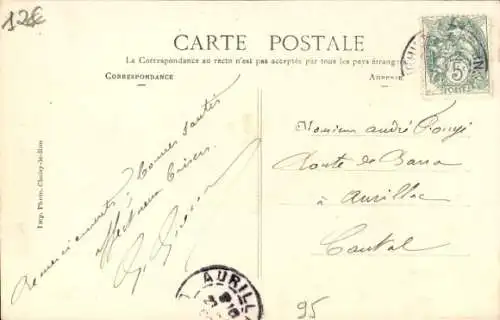 12€
CARTE POSTALE
La Correspondance au recto n'est pas acceptée par tous les pays étrangers
CORRESPONDANCE
ADRESSE
5c
POSTES
Remerciements, Bonnes Santés
affectueux Baisers
Monsieur André
Route de
à Aurillac
Cantal
AURILL
Imp. Photo. Choisy-le-Roi
95